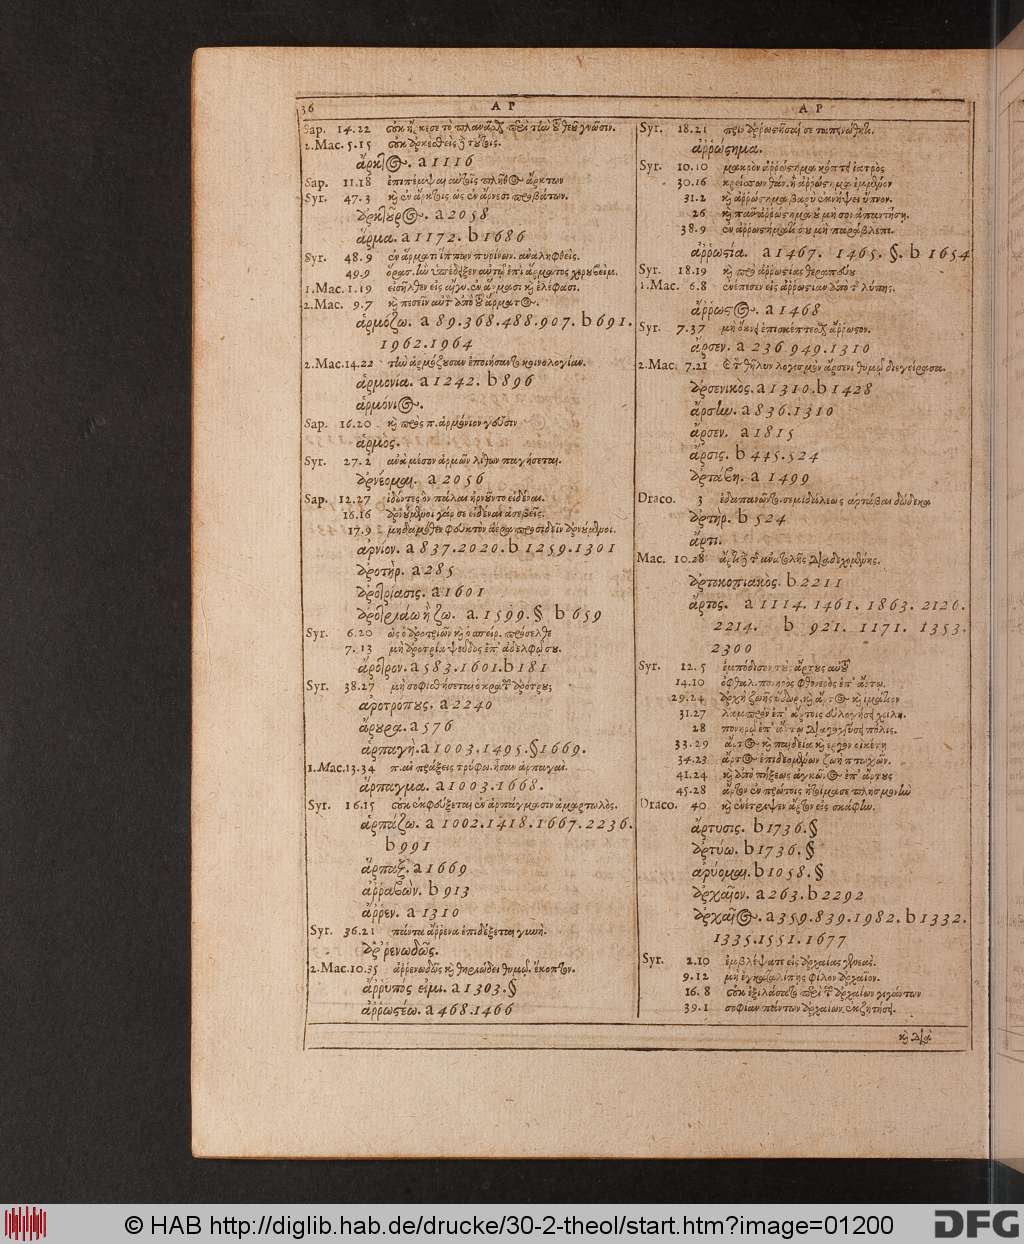 36
A P
A P
Sap. 14.22
2.Mac. 5.15
ἄρκτος. a 1116
Sap. 11.18 ἐπιπέμψαι αὐτοῖς πλῆθος ἄρκτων
Syr. 47.3 καὶ ἐν ἄρκτοις ὡς ἐν ἄρνεσι προβάτων.
ἀρκτοῦρος. a 2058
ἅρμα. a 1172. b 1686
Syr. 48.9 ἐν ἅρματι ἵππων πυρίνων. ἀναληφθείς.
49.9 ὅρασιν ὑπέδειξεν αὐτῷ ἐπὶ ἅρματος χερουβείμ.
1.Mac. 1.19 εἰσῆλθεν εἰς αἴγυ. ἐν ἅρμασι καὶ ἐλέφασι.
2.Mac. 9.7 καὶ πεσεῖν αὐτ ἀπὸ τοῦ ἅρματος.
ἁρμόζω. a 89.368.488.907. b 691.
1962.1964
2.Mac. 14.22 τὴν ἁρμόζουσαν ἐποιήσαντο κοινολογίαν.
ἁρμονία. a 1242. b 896
ἁρμόνιος.
Sap. 16.20 καὶ πρὸς π. ἁρμόνιον γεῦσιν
ἁρμος.
Syr. 27.2 ἀνὰ μέσον ἁρμῶν λίθων παγήσεται.
ἀρνέομαι. a 2056
Sap. 12.27 ἰδόντες ὃν πάλαι ἠρνοῦντο εἰδέναι.
16.16 ἀρνούμενοι γάρ σε εἰδέναι ἀσεβεῖς.
17.9 μηδαμόθεν φευκτὸν ἀέρα προσιδεῖν ἀρνούμενοι.
ἀρνίον. a 837.2020. b 1259.1301
ἀροτήρ. a 285
ἀροτρίασις. a 1601
ἀροτριάω ἢ ζω. a. 1599. § b 659
Syr. 6.20 ὡς ὁ ἀροτριῶν καὶ ὁ σπείρ. πρόσελθε
7.13 μὴ ἀροτρία ψεῦδος ἐπ' ἀδελφῷ σου.
ἄροτρον. a 583.1601. b 181
Syr. 38.27
ἀροτροπους. a 2240
ἄρουρα. a 576
ἁρπαγή. a 1003.1495. § 1669.
1.Mac. 13.34 π. αἱ πράξεις τρύφω. ἦσαν ἁρπαγαί.
ἅρπαγμα. a 1003.1668.
Syr. 16.15 οὐκ ἐκφεύξεται ἐν ἁρπάγμασιν ἁμαρτωλός.
ἁρπάζω. a 1002.1418.1667.2236.
b 991
ἅρπαξ. a 1669
ἀῤῥαβών. b 913
ἄῤῥεν. a 1310
Syr. 36.21 πάντα ἄῤῥενα ἐπιδέξεται γυνή.
ἀῤῥενωδῶς.
2.Mac. 10.35 ἀῤῥενωδῶς καὶ θηριώδει θυμῷ. ἔκοπτον.
ἄῤῥυπός εἰμι. a 1303. §
ἀῤῥωστέω. a 468.1466
Syr. 18.21
ἀῤῥώστημα.
Syr. 10.10 μακρὸν ἀῤῥώστημα κόπτει ἰατρός
30.16
31.2 καὶ ἀῤῥώστημα βαρὺ ἐκνήψει ὕπνον.
26 καὶ πᾶν ἀῤῥώστημα οὐ μή σοι ἀπαντήσῃ.
38.9 ἐν ἀῤῥωστήματί σου μὴ παράβλεπε.
ἀῤῥωστία. a 1467. 1465. §. b 1654
Syr. 18.19 καὶ πρὸ ἀῤῥωστίας θεραπεύου
1.Mac. 6.8 ἐνέπεσεν εἰς ἀῤῥωστίαν ἀπὸ τ λύπης.
ἄῤῥωστος. a 1468
Syr. 7.37 μὴ ὄκνει ἐπισκέπτεσθαι ἄῤῥωστον.
ἄρσεν. a 236.949.1310
2.Mac. 7.21 θῆλυν λογισμὸν ἄρσενι θυμῷ διεγείρασα.
ἀρσενικός. a 1310. b 1428
ἄρσην. a 836.1310
ἄρσεν. a 1815
ἄρσις. b 445.524
ἀρτάβη. a 1499
Draco. 3 ἐδαπανῶντο σεμιδάλεως ἀρτάβαι δώδεκα
ἀρτήρ. b 524
ἄρτι.
Mac. 10.28 ἄρτι τ ἀνατολῆς διαδεχομένης.
ἀρτοκοπιακός. b 2211
ἄρτος. a 1114. 1461. 1863. 2120.
2214. b 921. 1171. 1353.
2300
Syr. 12.5 ἐμπόδισον τοὺς ἄρτους αὐτοῦ
14.10 ὀφθαλ. πονηρὸς φθονερὸς ἐπ' ἄρτῳ.
29.24 ἀρχὴ ζωῆς ὕδωρ καὶ ἄρτος καὶ ἱμάτιον
31.27 λαμπρὸν ἐπ' ἄρτοις εὐλογήσει χείλη.
28 πονηρῷ ἐπ' ἄρτῳ διαγογγύσει πόλις.
33.29 ἄρτος καὶ παιδεία καὶ ἔργον οἰκέτῃ
34.23 ἄρτος ἐπιδεομένων ζωὴ πτωχῶν.
41.24 καὶ ἀπὸ πήξεως ἀγκῶνος ἐπ' ἄρτους
45.28 ἄρτον ἐν πρώτοις ἡτοίμασε πλησμονὴν
Draco. 40 καὶ ἐνέτριψεν ἄρτον εἰς σκάφην.
ἄρτυσις. b 1736. §
ἀρτύω. b 1736. §
ἀρύομαι. b 1058. §
ἀρχαῖον. a 263. b 2292
ἀρχαῖος. a 359.839.1982. b 1332.
1335.1551.1677
Syr. 2.10 ἐμβλέψατε εἰς ἀρχαίας γενεάς.
9.12 μὴ ἐγκαταλίπῃς φίλον ἀρχαῖον.
16.8 οὐκ ἐξιλάσατο περὶ τ ἀρχαίων γιγάντων
39.1 σοφίαν πάντων ἀρχαίων ἐκζητήσει.
καὶ διὰ
© HAB http://diglib.hab.de/drucke/30-2-theol/start.htm?image=01200
DFG